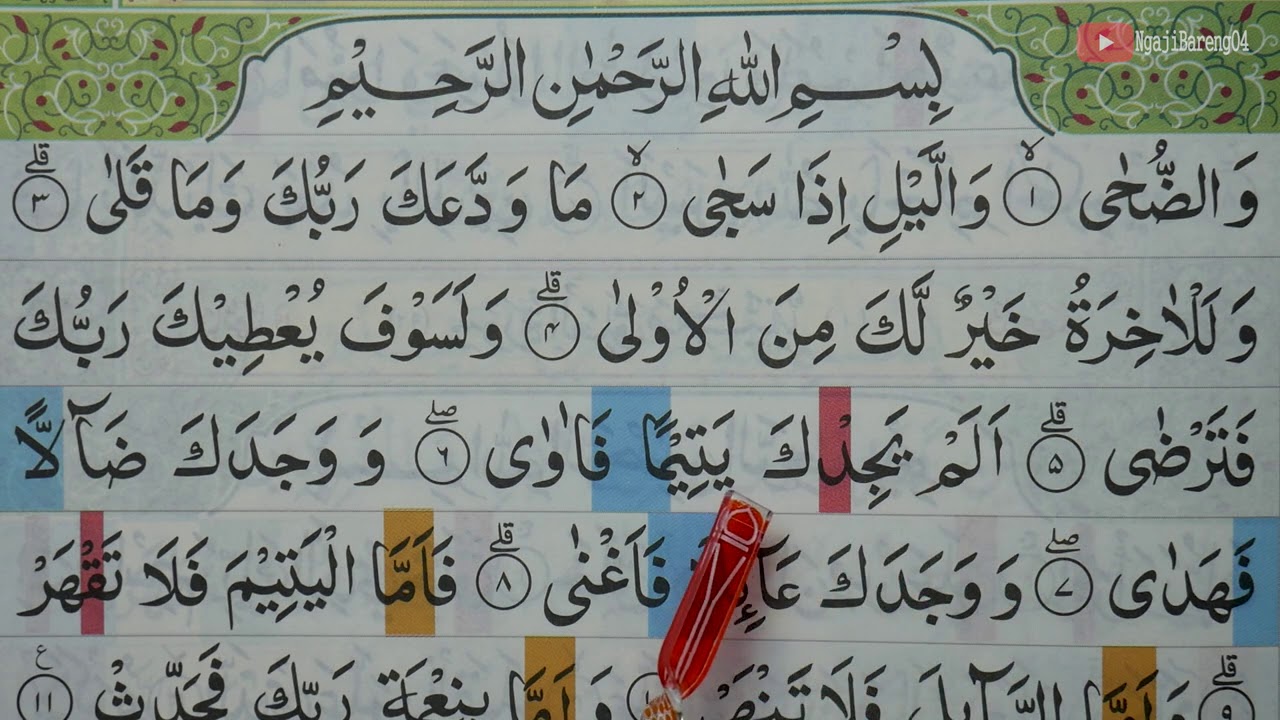 NgajiBareng04
بِسْمِ اللّٰهِ الرَّحْمٰنِ الرَّحِيْمِ
وَالضُّحٰى ۙ ١ وَالَّيْلِ اِذَا سَجٰى ۙ ٢ مَا وَدَّعَكَ رَبُّكَ وَمَا قَلٰى ۗ ٣
وَلَلْاٰخِرَةُ خَيْرٌ لَّكَ مِنَ الْاُوْلٰى ۗ ٤ وَلَسَوْفَ يُعْطِيْكَ رَبُّكَ
فَتَرْضٰى ۗ ٥ اَلَمْ يَجِدْكَ يَتِيْمًا فَاٰوٰى ۖ ٦ وَوَجَدَكَ ضَاۤلًّا
فَهَدٰى ۖ ٧ وَوَجَدَكَ فَاَغْنٰى ۗ ٨ فَاَمَّا الْيَتِيْمَ فَلَا تَقْهَرْ
ۗ ٩ وَاَمَّا السَّاۤىِٕلَ فَلَا تَنْهَرْ وَاَمَّا بِنِعْمَةِ رَبِّكَ فَحَدِّثْ ࣖ ١١